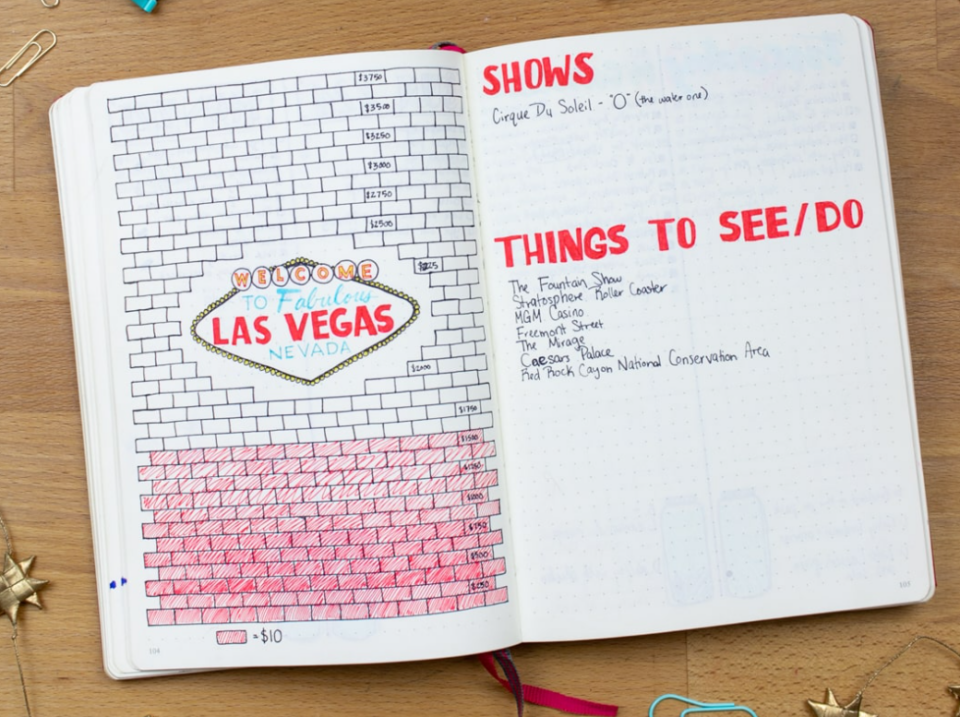 $3750
$3500
$3250
$3000
$2750
$2500
WELCOME
TO Fabulous
LAS VEGAS
NEVADA
$2000
$1750
$1500
$1250
$1000
$750
$500
$250
= $10
104
SHOWS
Cirque Du Soleil - "O" (the water one)
THINGS TO SEE/DO
The Fountain Show
Stratosphere Roller Coaster
MGM Casino
Freemont Street
The Mirage
Caesars Palace
Red Rock Cayon National Conservation Area
105